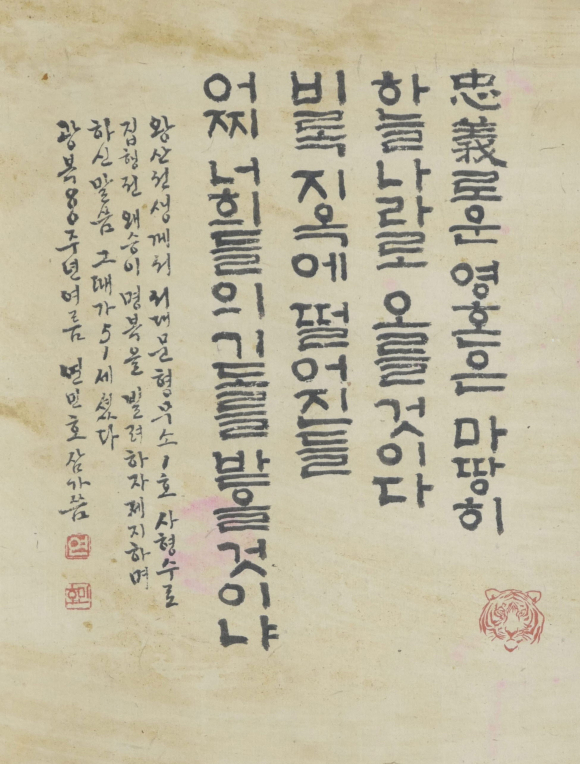 忠義로운 영혼은 마땅히
하늘나라로 오를 것이다
비록 지옥에 떨어진들
어찌 너희들의 기도를 받을 것이냐
왕산선생께서 서대문형무소 1호 사형수로
집형전 왜승이 명복을 빌려하자 제지하며
하신 말씀 그때가 51세셨다
광복80주년 여름 연민호 삼가씀